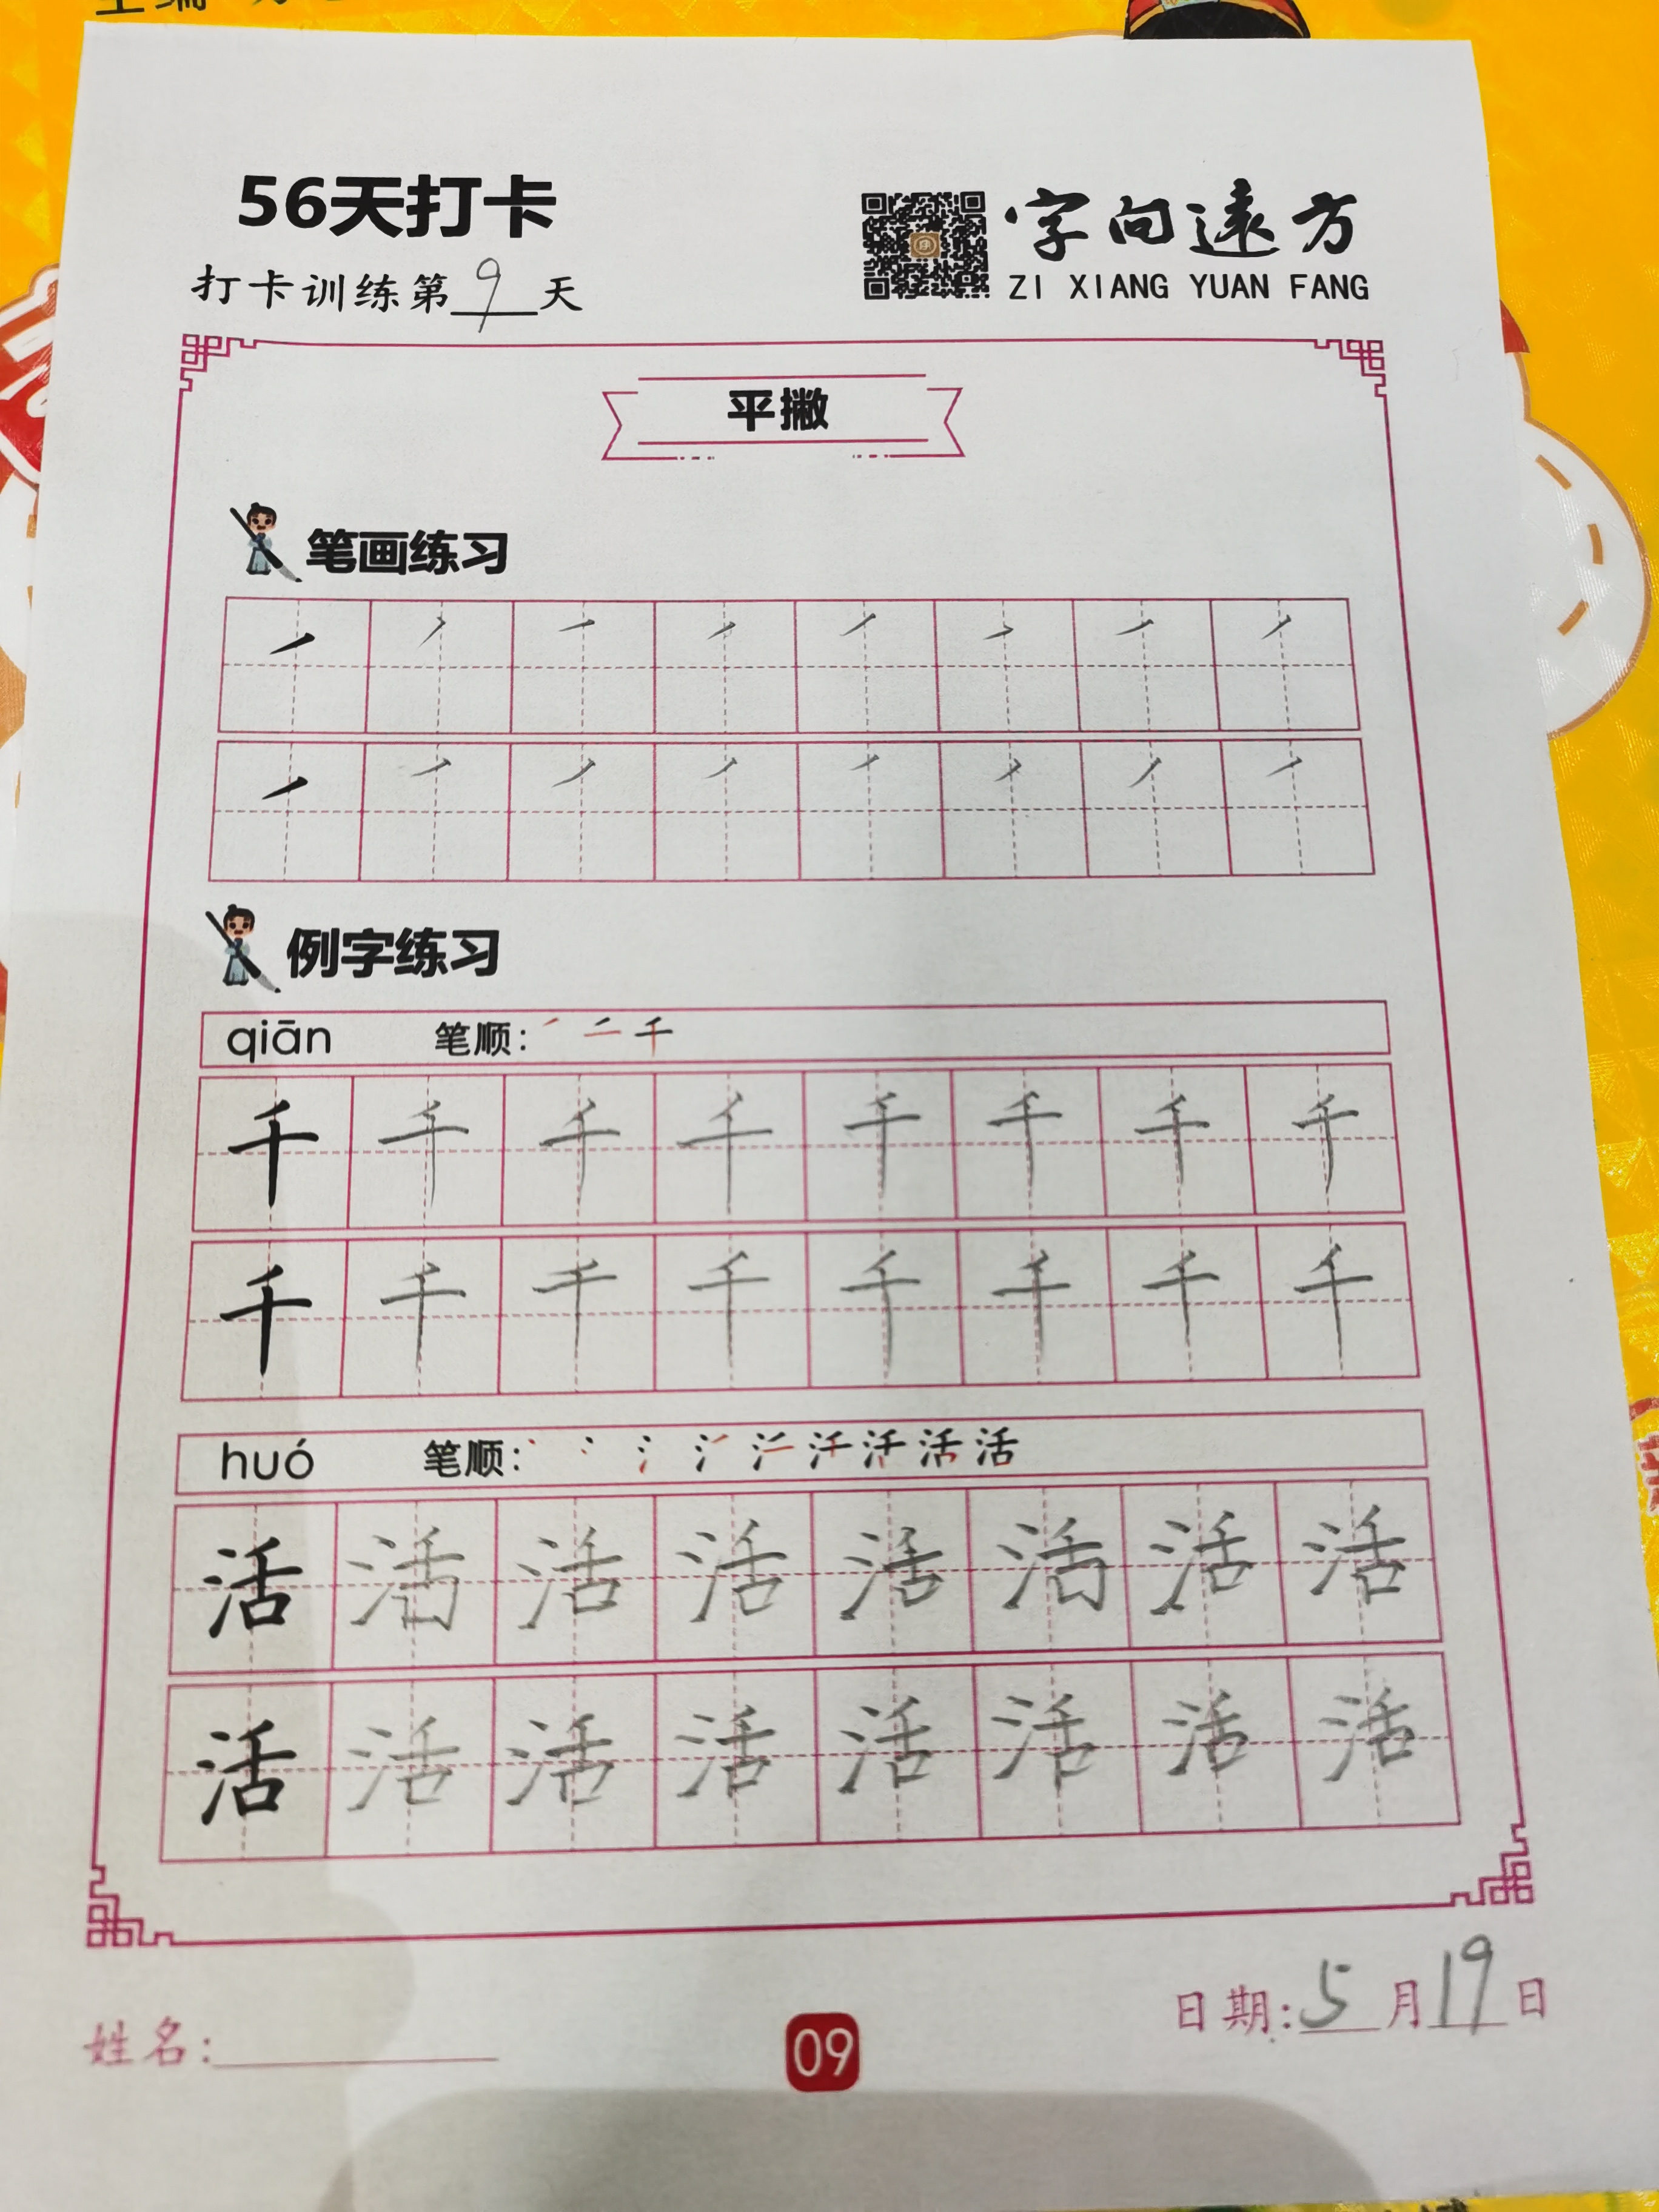 主编
56天打卡
打卡训练第9天
字向远方
ZI XIANG YUAN FANG
平撇
笔画练习
㇒ ㇒ ㇒ ㇒ ㇒ ㇒ ㇒ ㇒
㇒ ㇒ ㇒ ㇒ ㇒ ㇒ ㇒ ㇒
例字练习
qiān 笔顺: ㇒ 二 千
千 千 千 千 千 千 千 千
千 千 千 千 千 千 千 千
huó 笔顺: 活
活 活 活 活 活 活 活 活
活 活 活 活 活 活 活 活
姓名:
09
日期: 5月19日